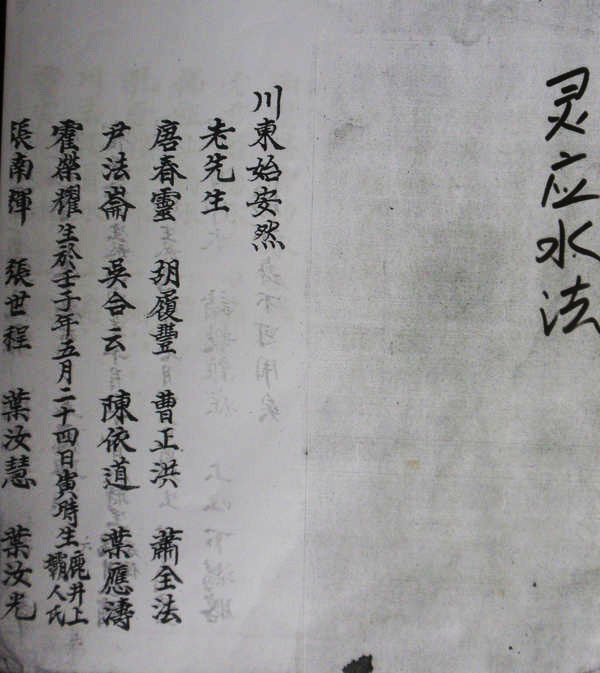 灵应水法
川東始安然
老先生
唐春靈 胡履豐 曹正洪 蕭全法
尹法崙 吳合云 陳依道 葉應濤
霍榮耀生於壬子年五月二十四日寅時生鹿井上壩人氏
張南暉 張世程 葉汝慧 葉汝光